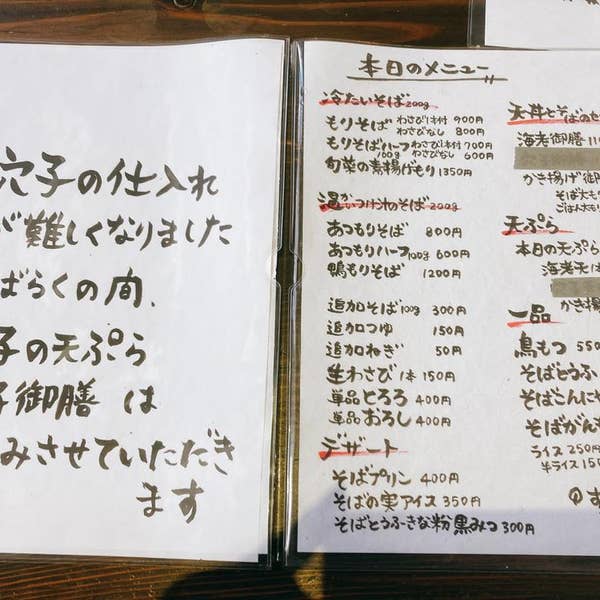 穴子の仕入れ
が難しくなりました
ばらくの間、
子の天ぷら
御膳は
みさせていただき
ます
本日のメニュー
冷たいそば 200g
もりそば わさび1本付 900円
わさびなし 800円
もりそばハーフ 100g わさび1本付 700円
わさびなし 600円
旬菜の素揚げもり 1350円
温かいつけ汁のそば 200g
あつもりそば 800円
あつもりハーフ 100g 600円
鴨もりそば 1200円
追加そば 100g 300円
追加つゆ 150円
追加ねぎ 50円
生わさび 1本 150円
単品とろろ 400円
単品おろし 400円
デザート
そばプリン 400円
そばの実アイス 350円
そばとうふきな粉黒みつ 300円
天丼とそばのセ
海老御膳 11
かき揚げ御
そば大も
ごはん大も
天ぷら
本日の天ぷら
海老天1本
かき揚
一品
鳥もつ 550
そばとうふ
そばこんに
そばがんも
ライス 250円
半ライス 150